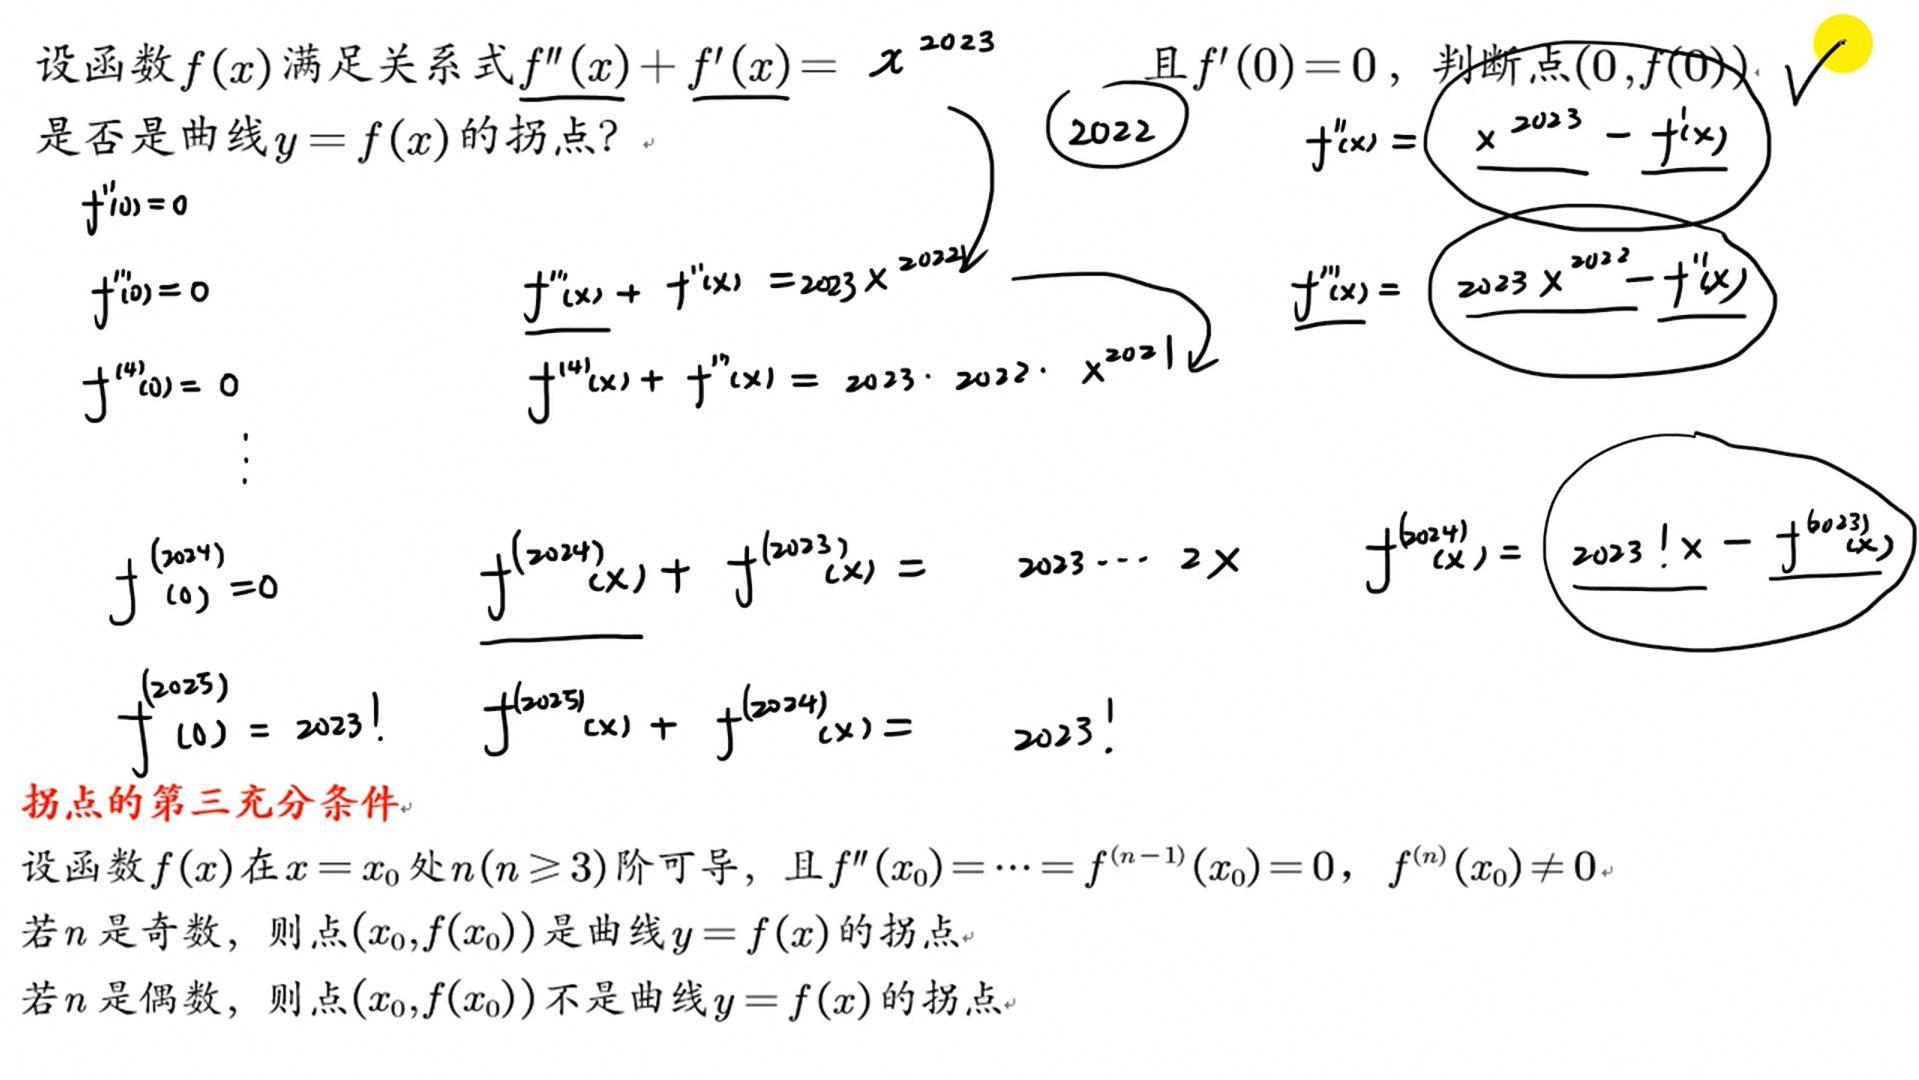 设函数f(x)满足关系式f''(x)+f'(x)= x^2023 且f'(0)=0，判断点(0,f(0))
是否是曲线y=f(x)的拐点？
2022
f''(x) = x^2023 - f'(x)
f''(0)=0
f'''(0)=0
f'''(x) + f''(x) =2023 x^2022
f'''(x) = 2023 x^2022 - f''(x)
f^(4)(0)= 0
f^(4)(x) + f'''(x) = 2023· 2022· x^2021
⋮
f^(2024)(0)=0
f^(2024)(x) + f^(2023)(x) = 2023··· 2x
f^(2024)(x) = 2023! x - f^(2023)(x)
f^(2025)(0) = 2023!
f^(2025)(x) + f^(2024)(x) = 2023!
拐点的第三充分条件
设函数f(x)在x=x₀处n(n⩾3)阶可导，且f''(x₀)=···=f^(n-1)(x₀)=0，f^(n)(x₀)≠0
若n是奇数，则点(x₀,f(x₀))是曲线y=f(x)的拐点
若n是偶数，则点(x₀,f(x₀))不是曲线y=f(x)的拐点